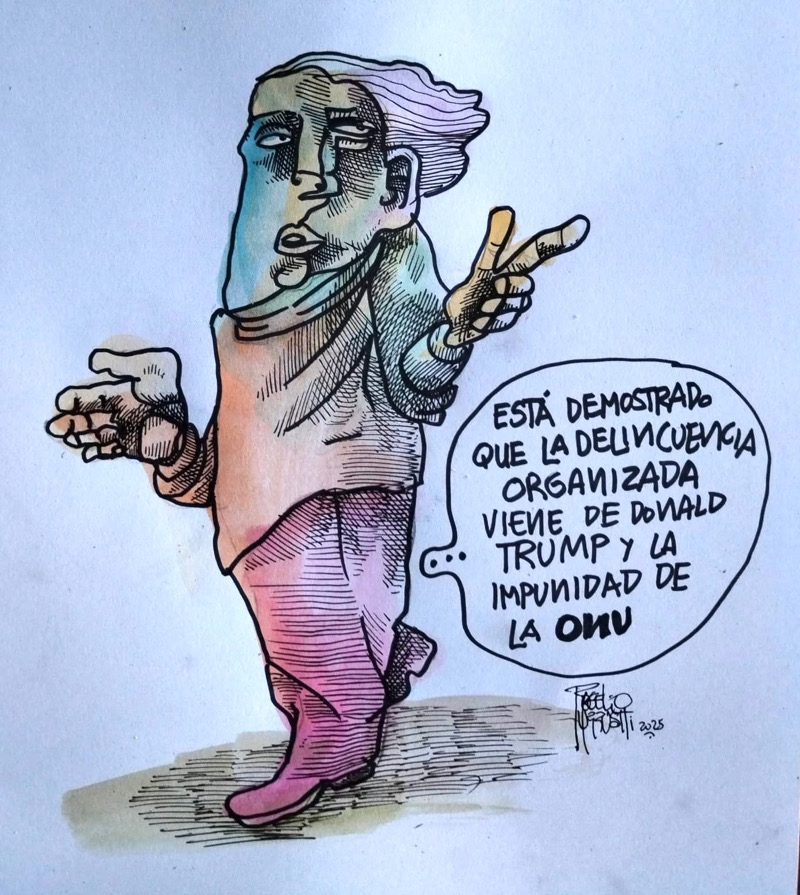 ESTÁ DEMOSTRADO
QUE LA DELINCUENCIA
ORGANIZADA
VIENE DE DONALD
TRUMP Y LA
IMPUNIDAD DE
LA ONU
2025